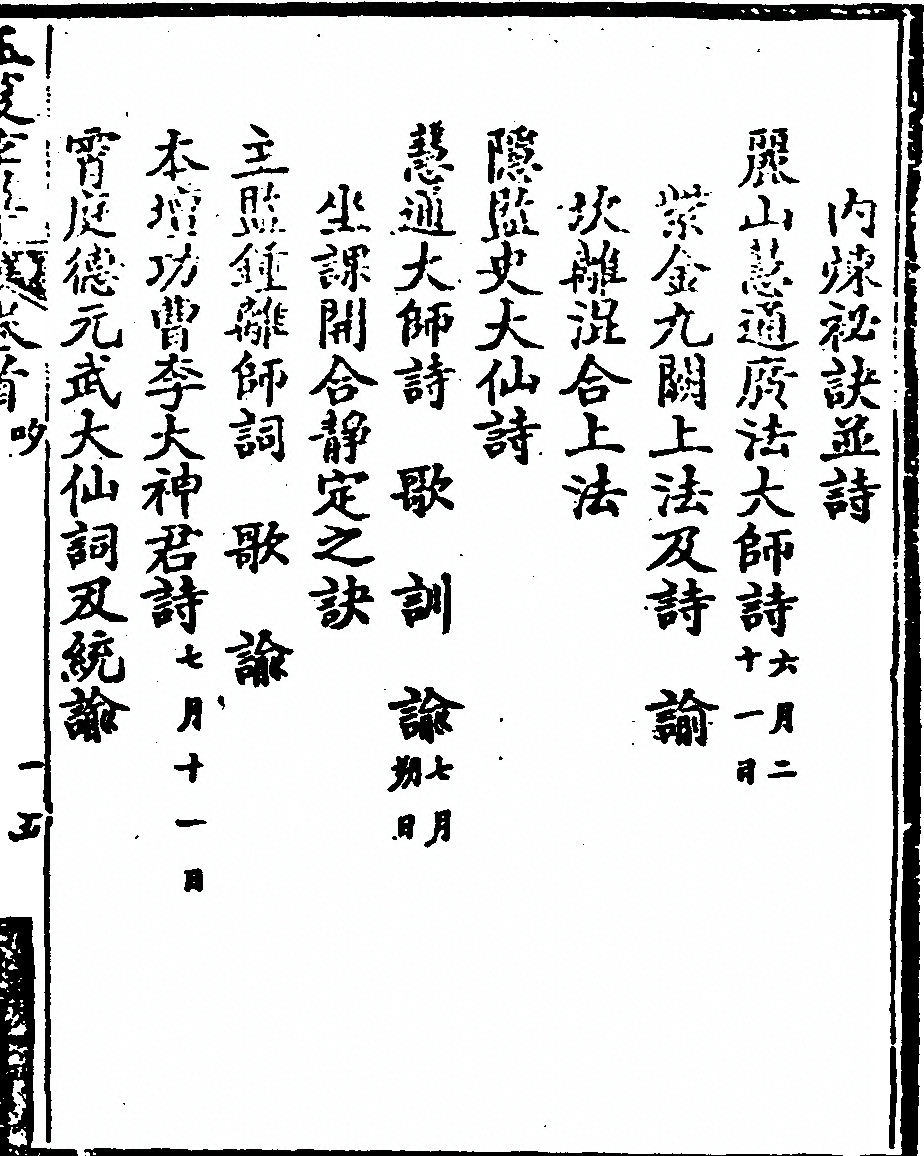 內煉祕訣並詩
麗山慧通廣法大師詩六月二十一日
紫金九關上法及詩 諭
坎離混合上法
隱監史大仙詩
慧通大師詩 歌 訓 諭七月朔日
坐課開合靜定之訣
主監鍾離師詞 歌 諭
本壇功曹李大神君詩七月十一日
霄庭德元武大仙詞及統諭
卷首 吩 一 五